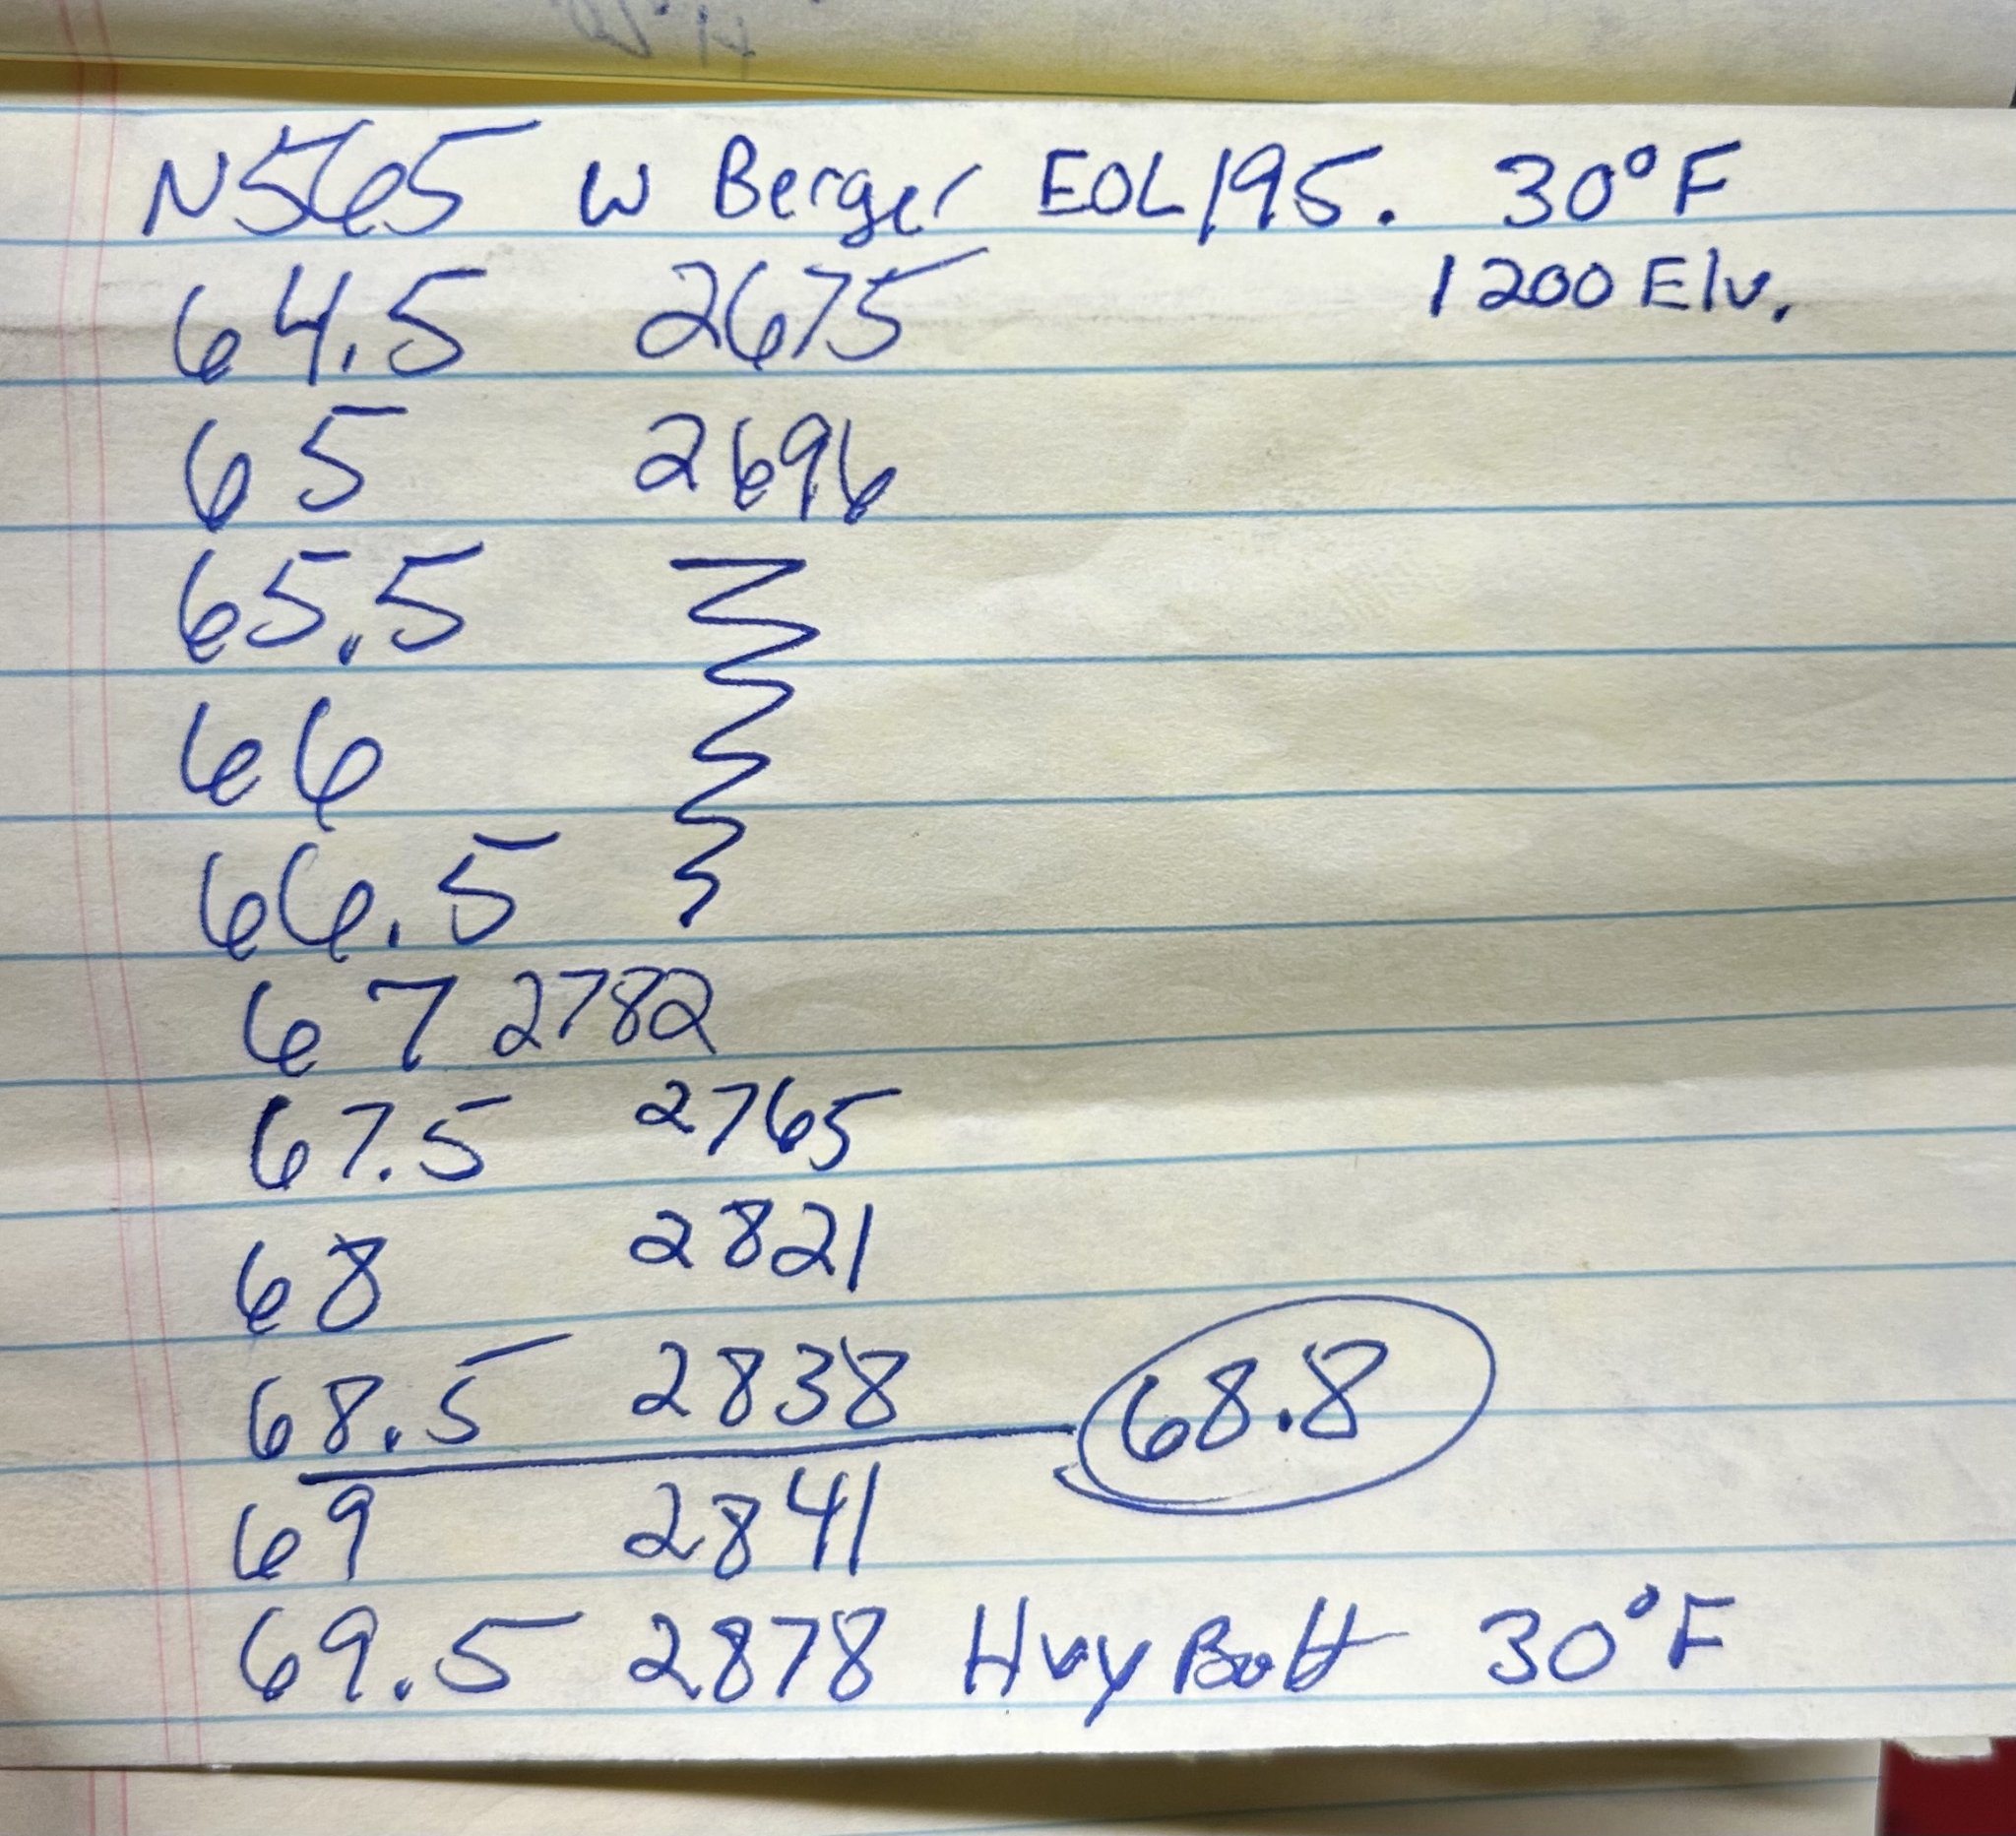 N565 W Berger EOL 195. 30°F
1200 Elv.
64.5 2675
65 2696
65.5
66
66.5
67 2782
67.5 2765
68 2821
68.5 2838 68.8
69 2841
69.5 2878 Hvy Bolt 30°F